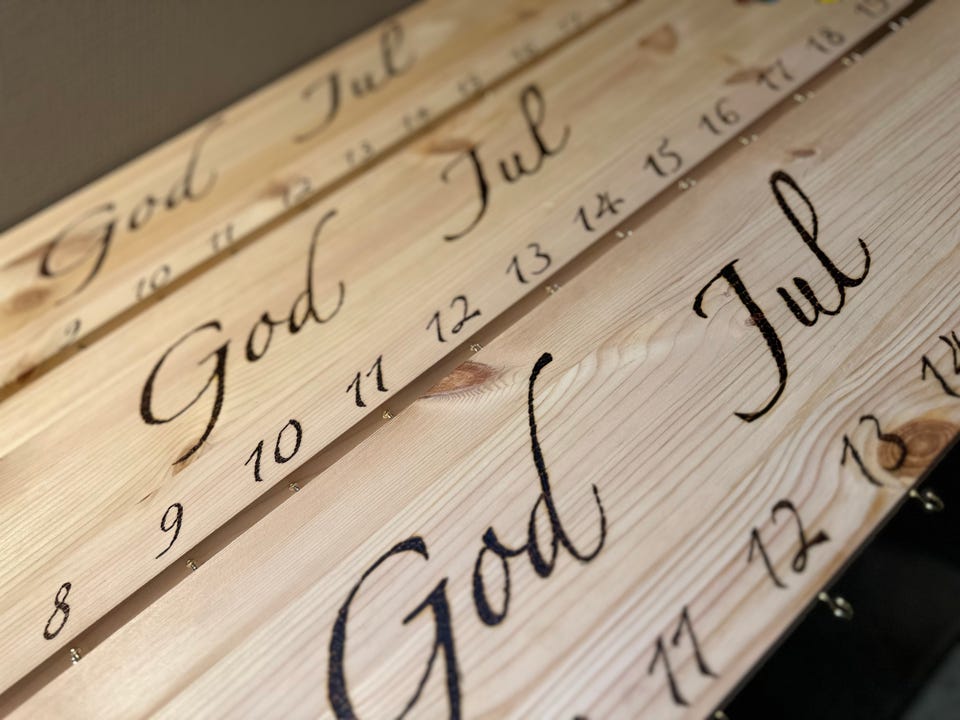 God Jul
9 10 11 12 13 14 15 16 17
God Jul
8 9 10 11 12 13 14 15 16 17 18 19
God Jul
11 12 13 14